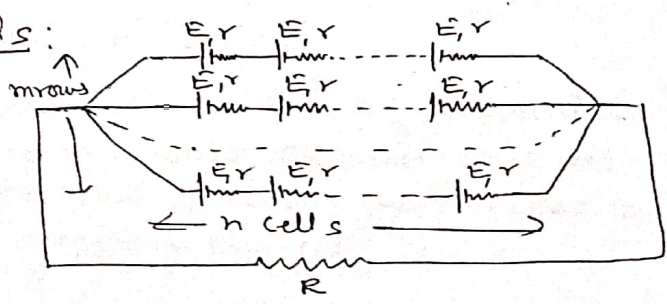 ls:
E,r E,r E,r
m rows
E,r E,r E,r
E,r E,r E,r
← n cells →
R